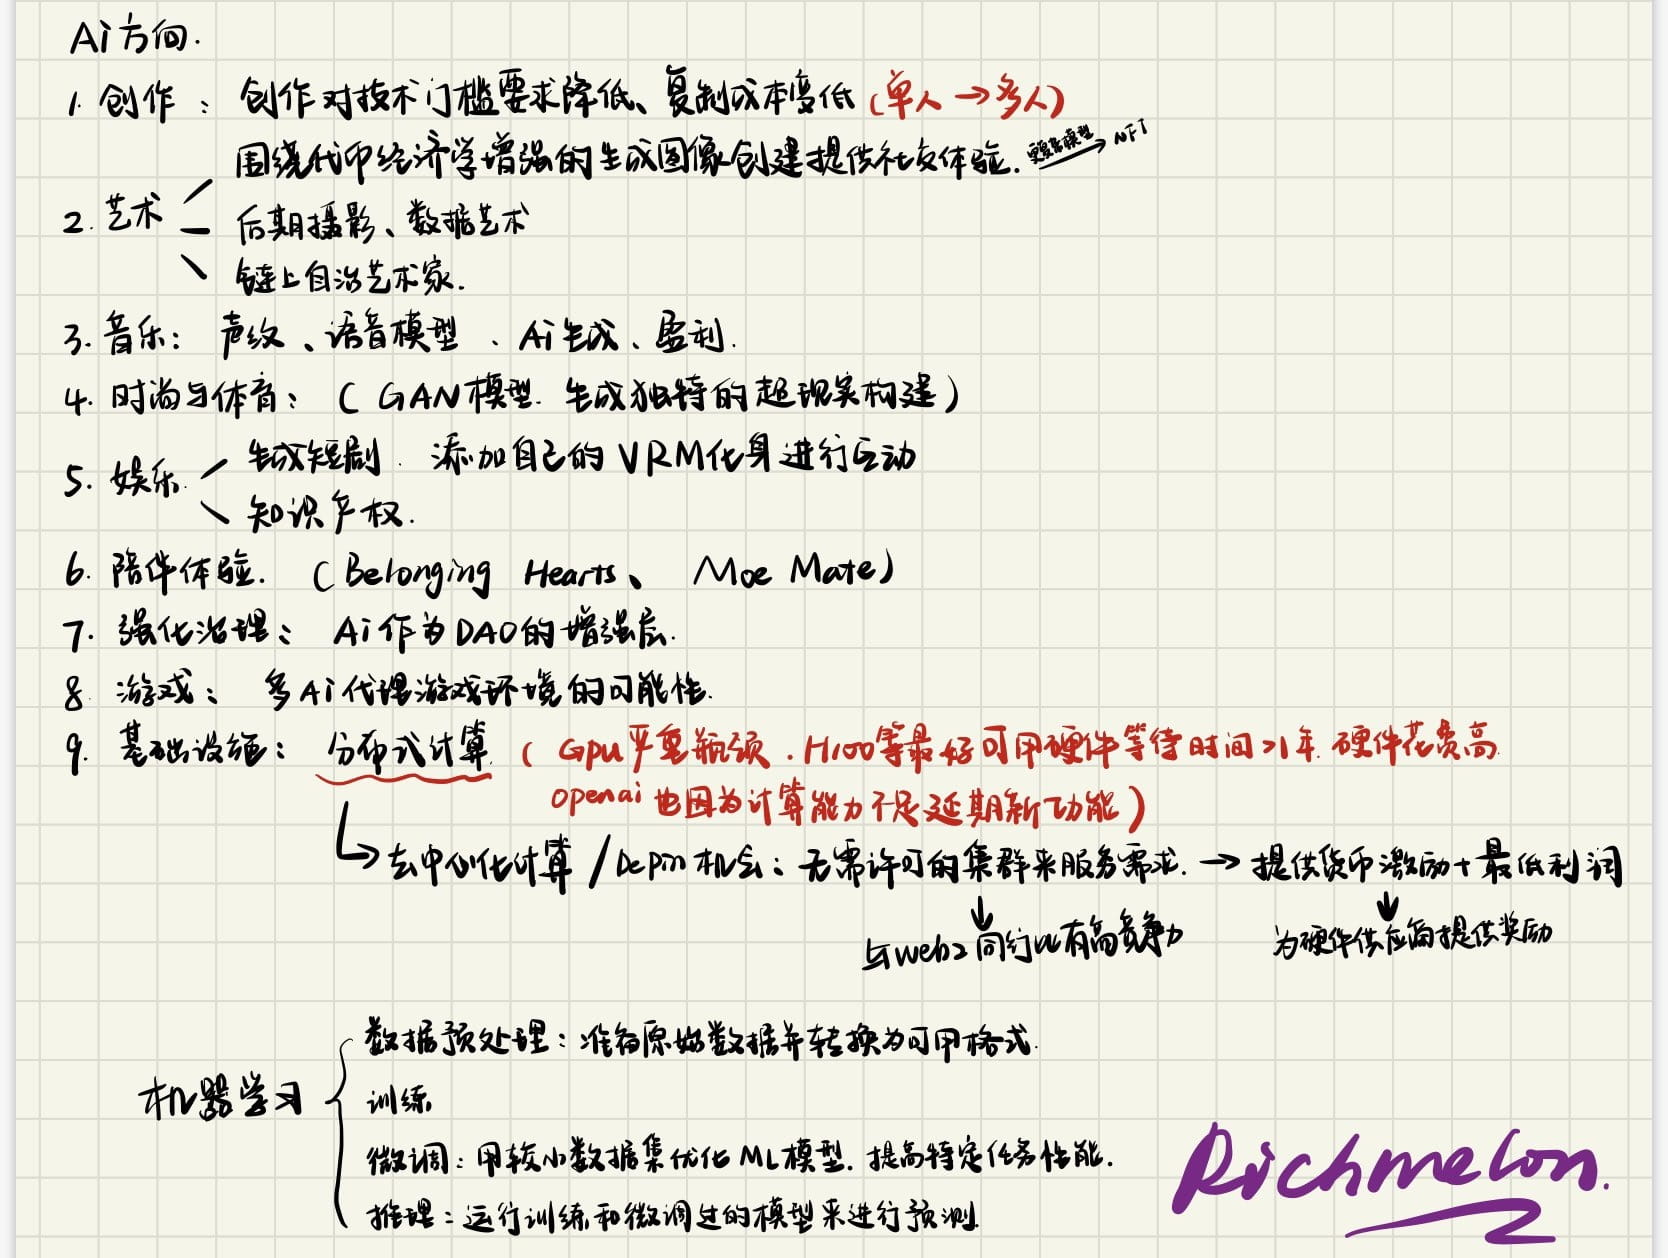 Ai方向.
1. 创作： 创作对技术门槛要求降低、复制成本变低 (单人→多人)
围绕代币经济学增强的生成图像创建提供社交体验. → NFT
2. 艺术
后期摄影、数据艺术
链上自治艺术家.
3. 音乐： 声纹、语音模型、Ai生成、盈利.
4. 时尚与体育：( GAN模型. 生成独特的超现实构建)
生成短剧. 添加自己的VRM化身进行互动
5. 娱乐.
知识产权.
6. 陪伴体验. (Belonging Hearts、 Moe Mate)
7. 强化治理： Ai作为DAO的增强层.
8. 游戏： 多Ai代理游戏环境的可能性.
9. 基础设施： 分布式计算. ( Gpu严重瓶颈. H100等最好可用硬件等待时间>1年. 硬件花费高.
openai也因为计算能力不足延期新功能)
→去中心化计算/Depin机会：无需许可的集群来服务需求. →提供货币激励+最低利润
↓ ↓
与web2同行比有高竞争力 为硬件供应商提供奖励
数据预处理：准备原始数据并转换为可用格式.
机器学习
训练
微调：用较小数据集优化ML模型. 提高特定任务性能.
推理：运行训练和微调过的模型来进行预测.
Richmelon.